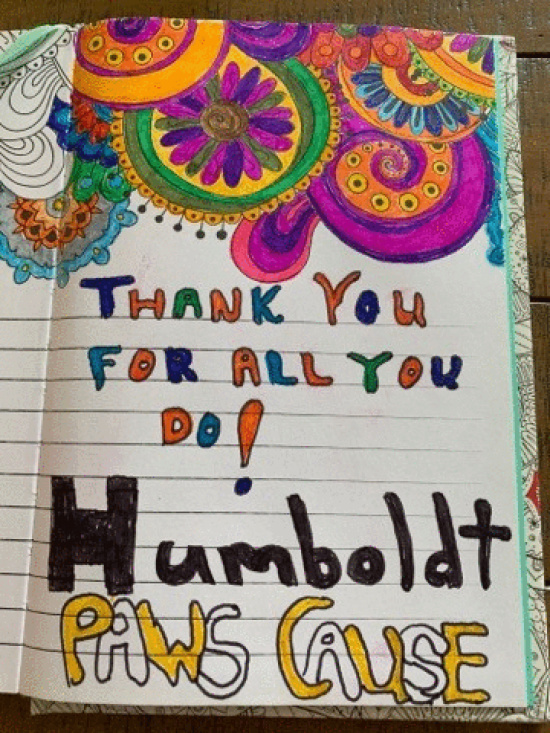 THANK YOU
FOR ALL YOU
DO!
Humboldt
PAWS CAUSE